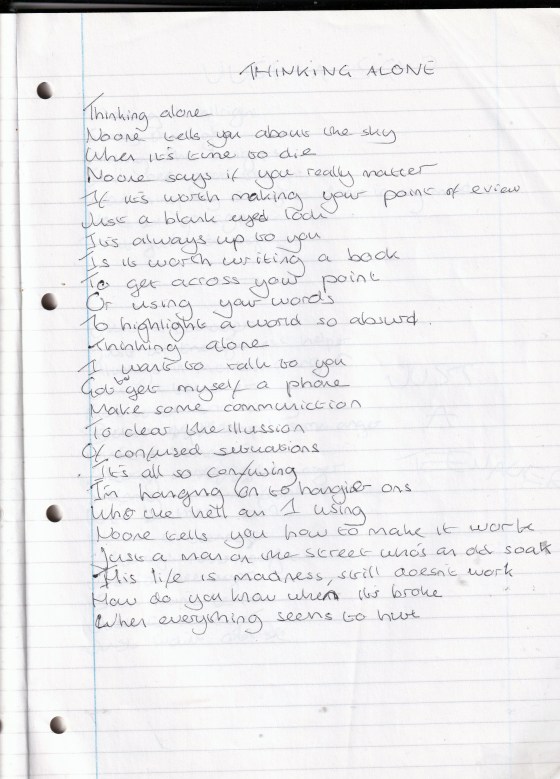 THINKING ALONE
Thinking alone
Noone tells you about the sky
When it's time to die
Noone says if you really matter
If it's worth making your point of eview
Just a blank eyed look
It's always up to you
Is it worth writing a book
To get across your point
Or using your words
To highlight a world so absurd.
Thinking alone
I want to talk to you
Got to get myself a phone
Make some communiction
To clear the illussion
Of confused situations
It's all so confusing
I'm hanging on to hangier ons
Who the hell am I using
Noone tells you how to make it work
Just a man on the street who's an old soak
This life is madness, still doesn't work
How do you know when it's broke
When everything seems to hurt